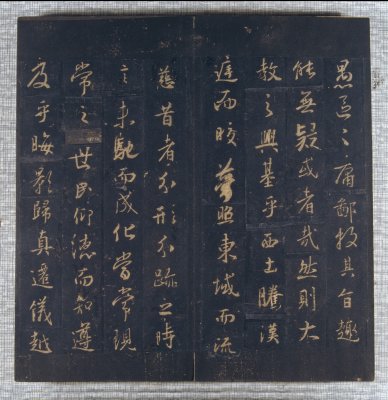 愚區々庸鄙投其旨趣
能無疑或者哉然則大
教之興基乎西土騰漢
庭而皎夢照東域而流
慈昔者分形分跡之時
言未馳而成化當常現
常之世民仰德而知遵
及乎晦影歸真遷儀越